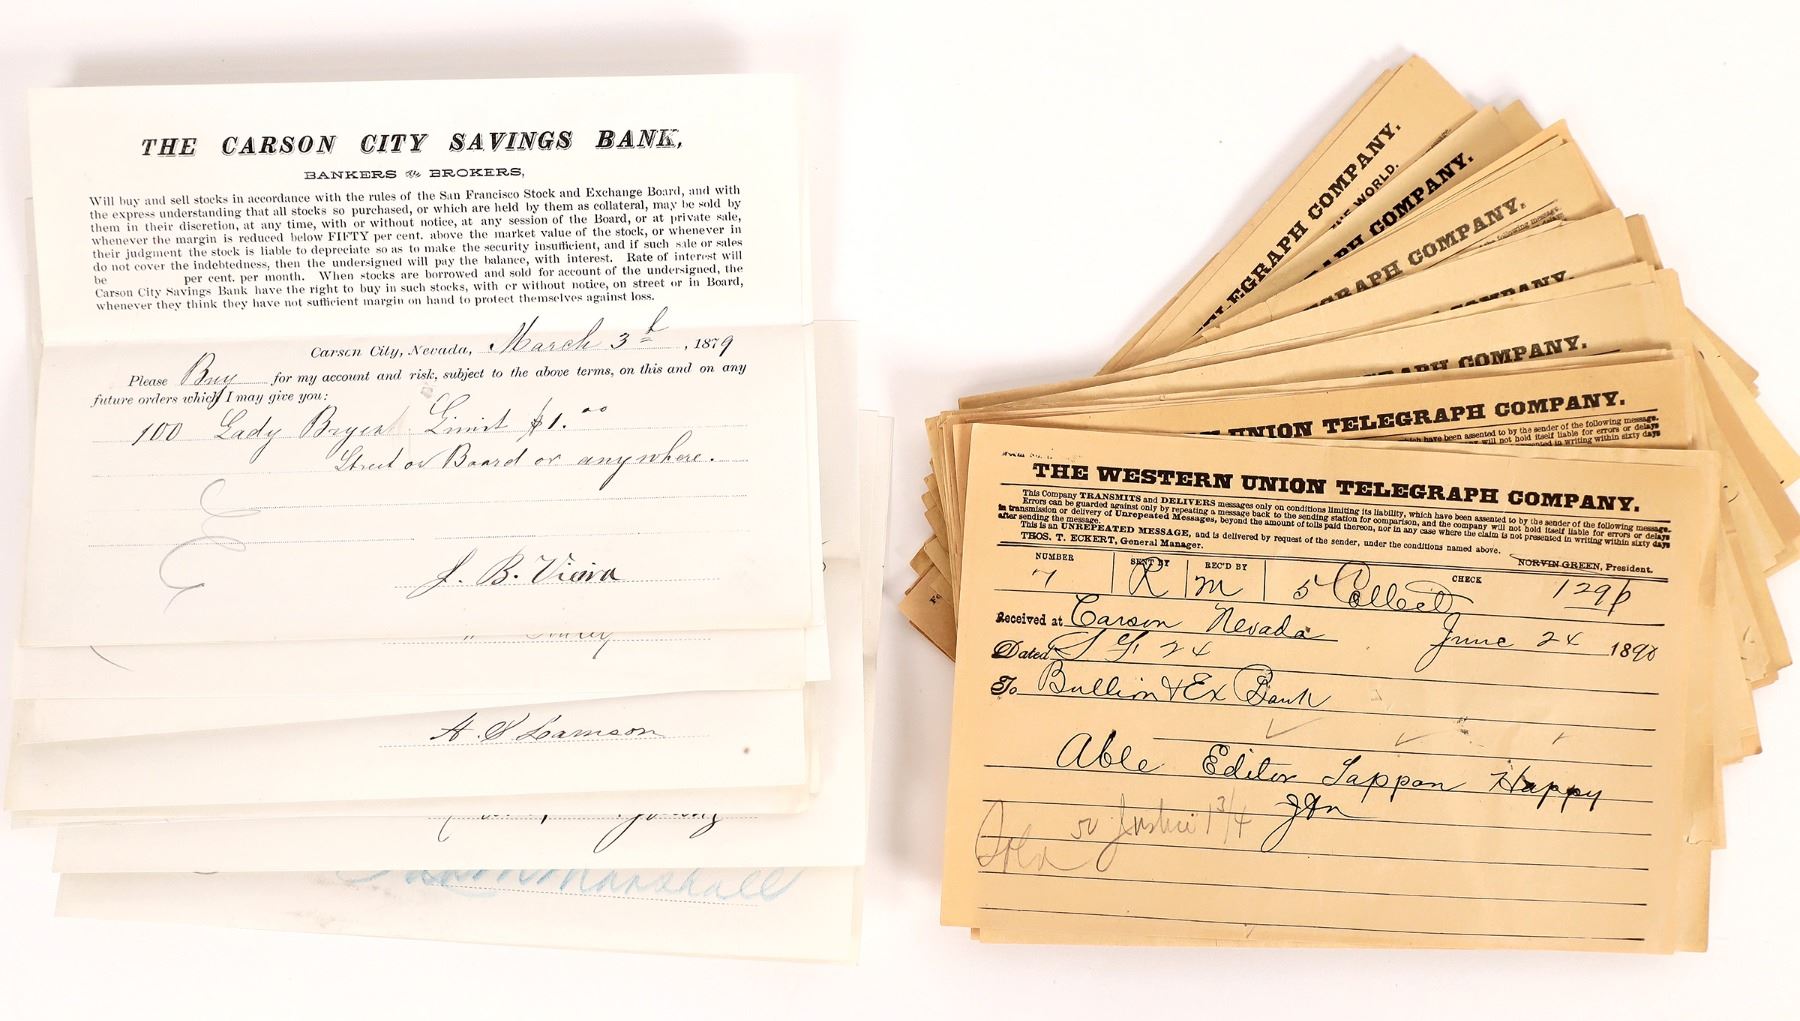 THE CARSON CITY SAVINGS BANK,
BANKERS & BROKERS,
Will buy and sell stocks in accordance with the rules of the San Francisco Stock and Exchange Board, and with
the express understanding that all stocks so purchased, or which are held by them as collateral, may be sold by
them in their discretion, at any time, with or without notice, at any session of the Board, or at private sale,
whenever the margin is reduced below FIFTY per cent. above the market value of the stock, or whenever in
their judgment the stock is liable to depreciate so as to make the security insufficient, and if such sale or sales
do not cover the indebtedness, then the undersigned will pay the balance, with interest. Rate of interest will
be per cent. per month. When stocks are borrowed and sold for account of the undersigned, the
Carson City Savings Bank have the right to buy in such stocks, with or without notice, on street or in Board,
whenever they think they have not sufficient margin on hand to protect themselves against loss.
Carson City, Nevada, March 3th, 1879
Please Buy for my account and risk, subject to the above terms, on this and on any
future orders which I may give you:
100 Lady Bryent Limit $1.00
Street or Board or anywhere.
J. B. Vieira
A. S. Lamson
Marshall
TELEGRAPH COMPANY.
THE WORLD.
GRAPH COMPANY.
GRAPH COMPANY.
COMPANY.
GRAPH COMPANY.
UNION TELEGRAPH COMPANY.
which have been assented to by the sender of the following message.
will not hold itself liable for errors or delays
presented in writing within sixty days
THE WESTERN UNION TELEGRAPH COMPANY.
This Company TRANSMITS and DELIVERS messages only on conditions limiting its liability, which have been assented to by the sender of the following message.
Errors can be guarded against only by repeating a message back to the sending station for comparison, and the company will not hold itself liable for errors or delays
in transmission or delivery of Unrepeated Messages, beyond the amount of tolls paid thereon, nor in any case where the claim is not presented in writing within sixty days
after sending the message.
This is an UNREPEATED MESSAGE, and is delivered by request of the sender, under the conditions named above.
THOS. T. ECKERT, General Manager. NORVIN GREEN, President.
NUMBER SENT BY REC'D BY CHECK
7 R M 5 Collect 129p
Received at Carson Nevada June 24 1890
Dated S F 24
To Bullion & Ex Bank
Able Editor Tappan Happy
50 Justice 1 3/4
Sold